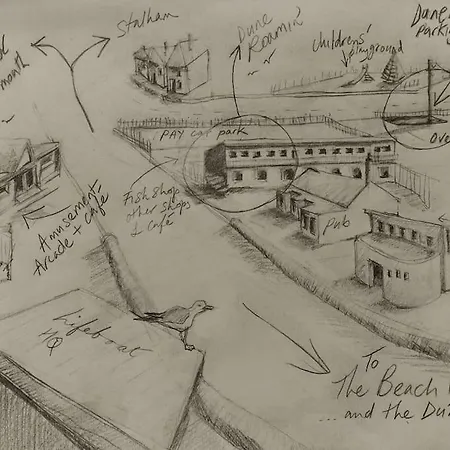 Stalham
Dune
Roamin'
Childrens'
playground
Dune
Parking
month
PAY car park
Fish shop
other shops
+ Café
Amusement
Arcade + café
Pub
Lifeboat
HQ
To
The Beach
... and the